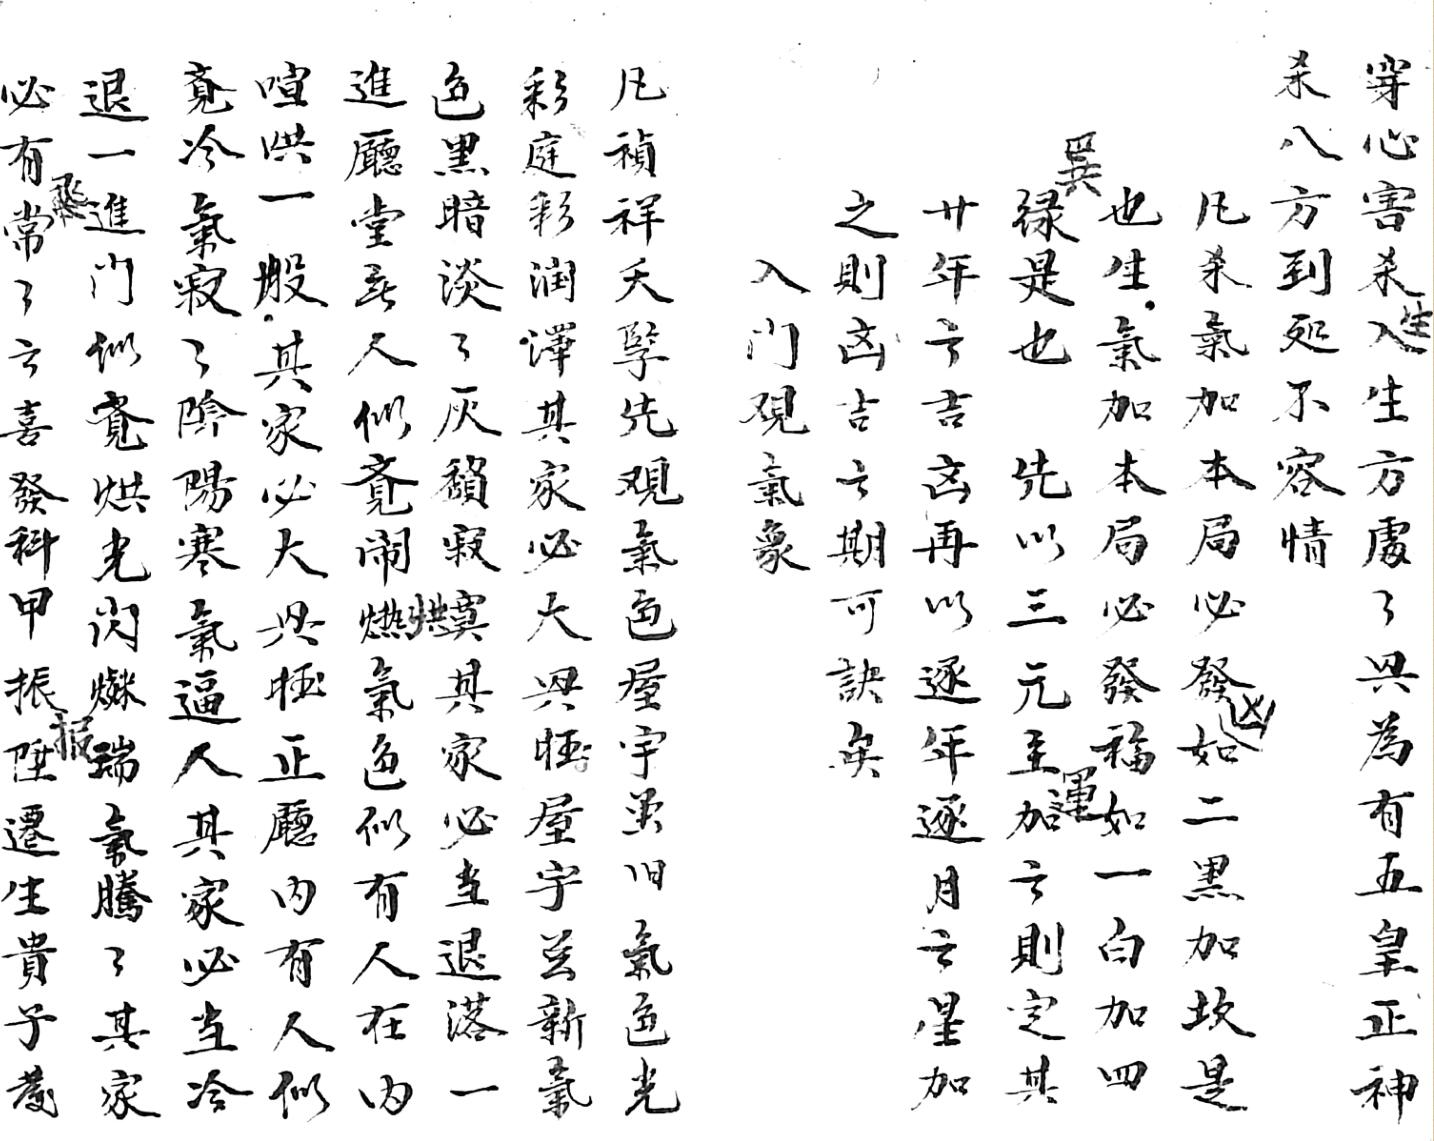 穿心害杀入生方處了畀為有五皇正神
生
杀八方到死不容情
凡杀氣加本局必發如二黑加坎是
凶
也生氣加本局必發福如一白加四
巽
緑是也 先以三元主加云則定其
運
廿年亏吉凶再以逐年逐月云星加
之則凶吉云期可訣矣
入门观氣象
凡禎祥夭孽先观氣色屋宇虽旧氣色光
彩庭彩润澤其家必大畀旺屋宇並新氣
色黑暗淡了灰頽寂寞其家必当退落一
進廳堂无人似覔闹燃氣色似有人在内
烘
喧烘一般其家必大畀旺正廳内有人似
覔冷氣寂了陰陽寒氣逼人其家必当冷
退一進门似覔烘光闪爍瑞氣騰了其家
必有常了云喜發科甲振陞遷生貴子發
飛
报